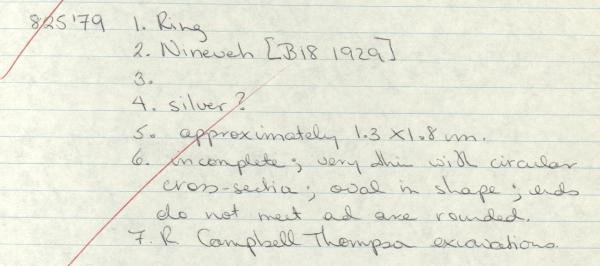 825'79 1. Ring
2. Nineveh [B18 1929]
3.
4. silver?
5. approximately 1.3 x 1.8 cm.
6. incomplete; very thin with circular
cross-section; oval in shape; ends
do not meet and are rounded.
7. R Campbell Thompson excavations.